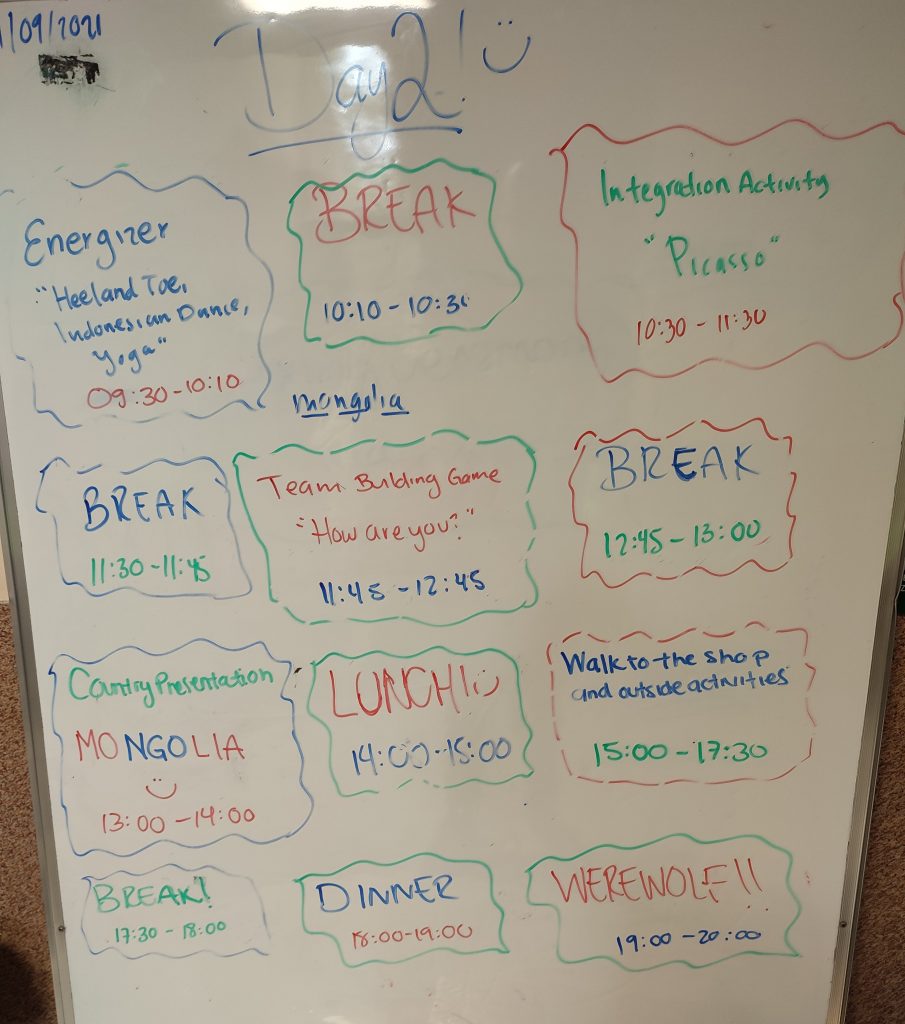 /09/2021
Day 2! :)
Energizer
"Heel and Toe,
Indonesian Dance,
Yoga"
09:30-10:10
BREAK
10:10-10:30
Integration Activity
"Picasso"
10:30-11:30
mongolia
BREAK
11:30-11:45
Team Building Game
"How are you?"
11:45-12:45
BREAK
12:45-13:00
Country Presentation
MONGOLIA
:)
13:00-14:00
LUNCH! :)
14:00-15:00
Walk to the shop
and outside activities
15:00-17:30
BREAK!
17:30-18:00
DINNER
18:00-19:00
WEREWOLF!!
19:00-20:00